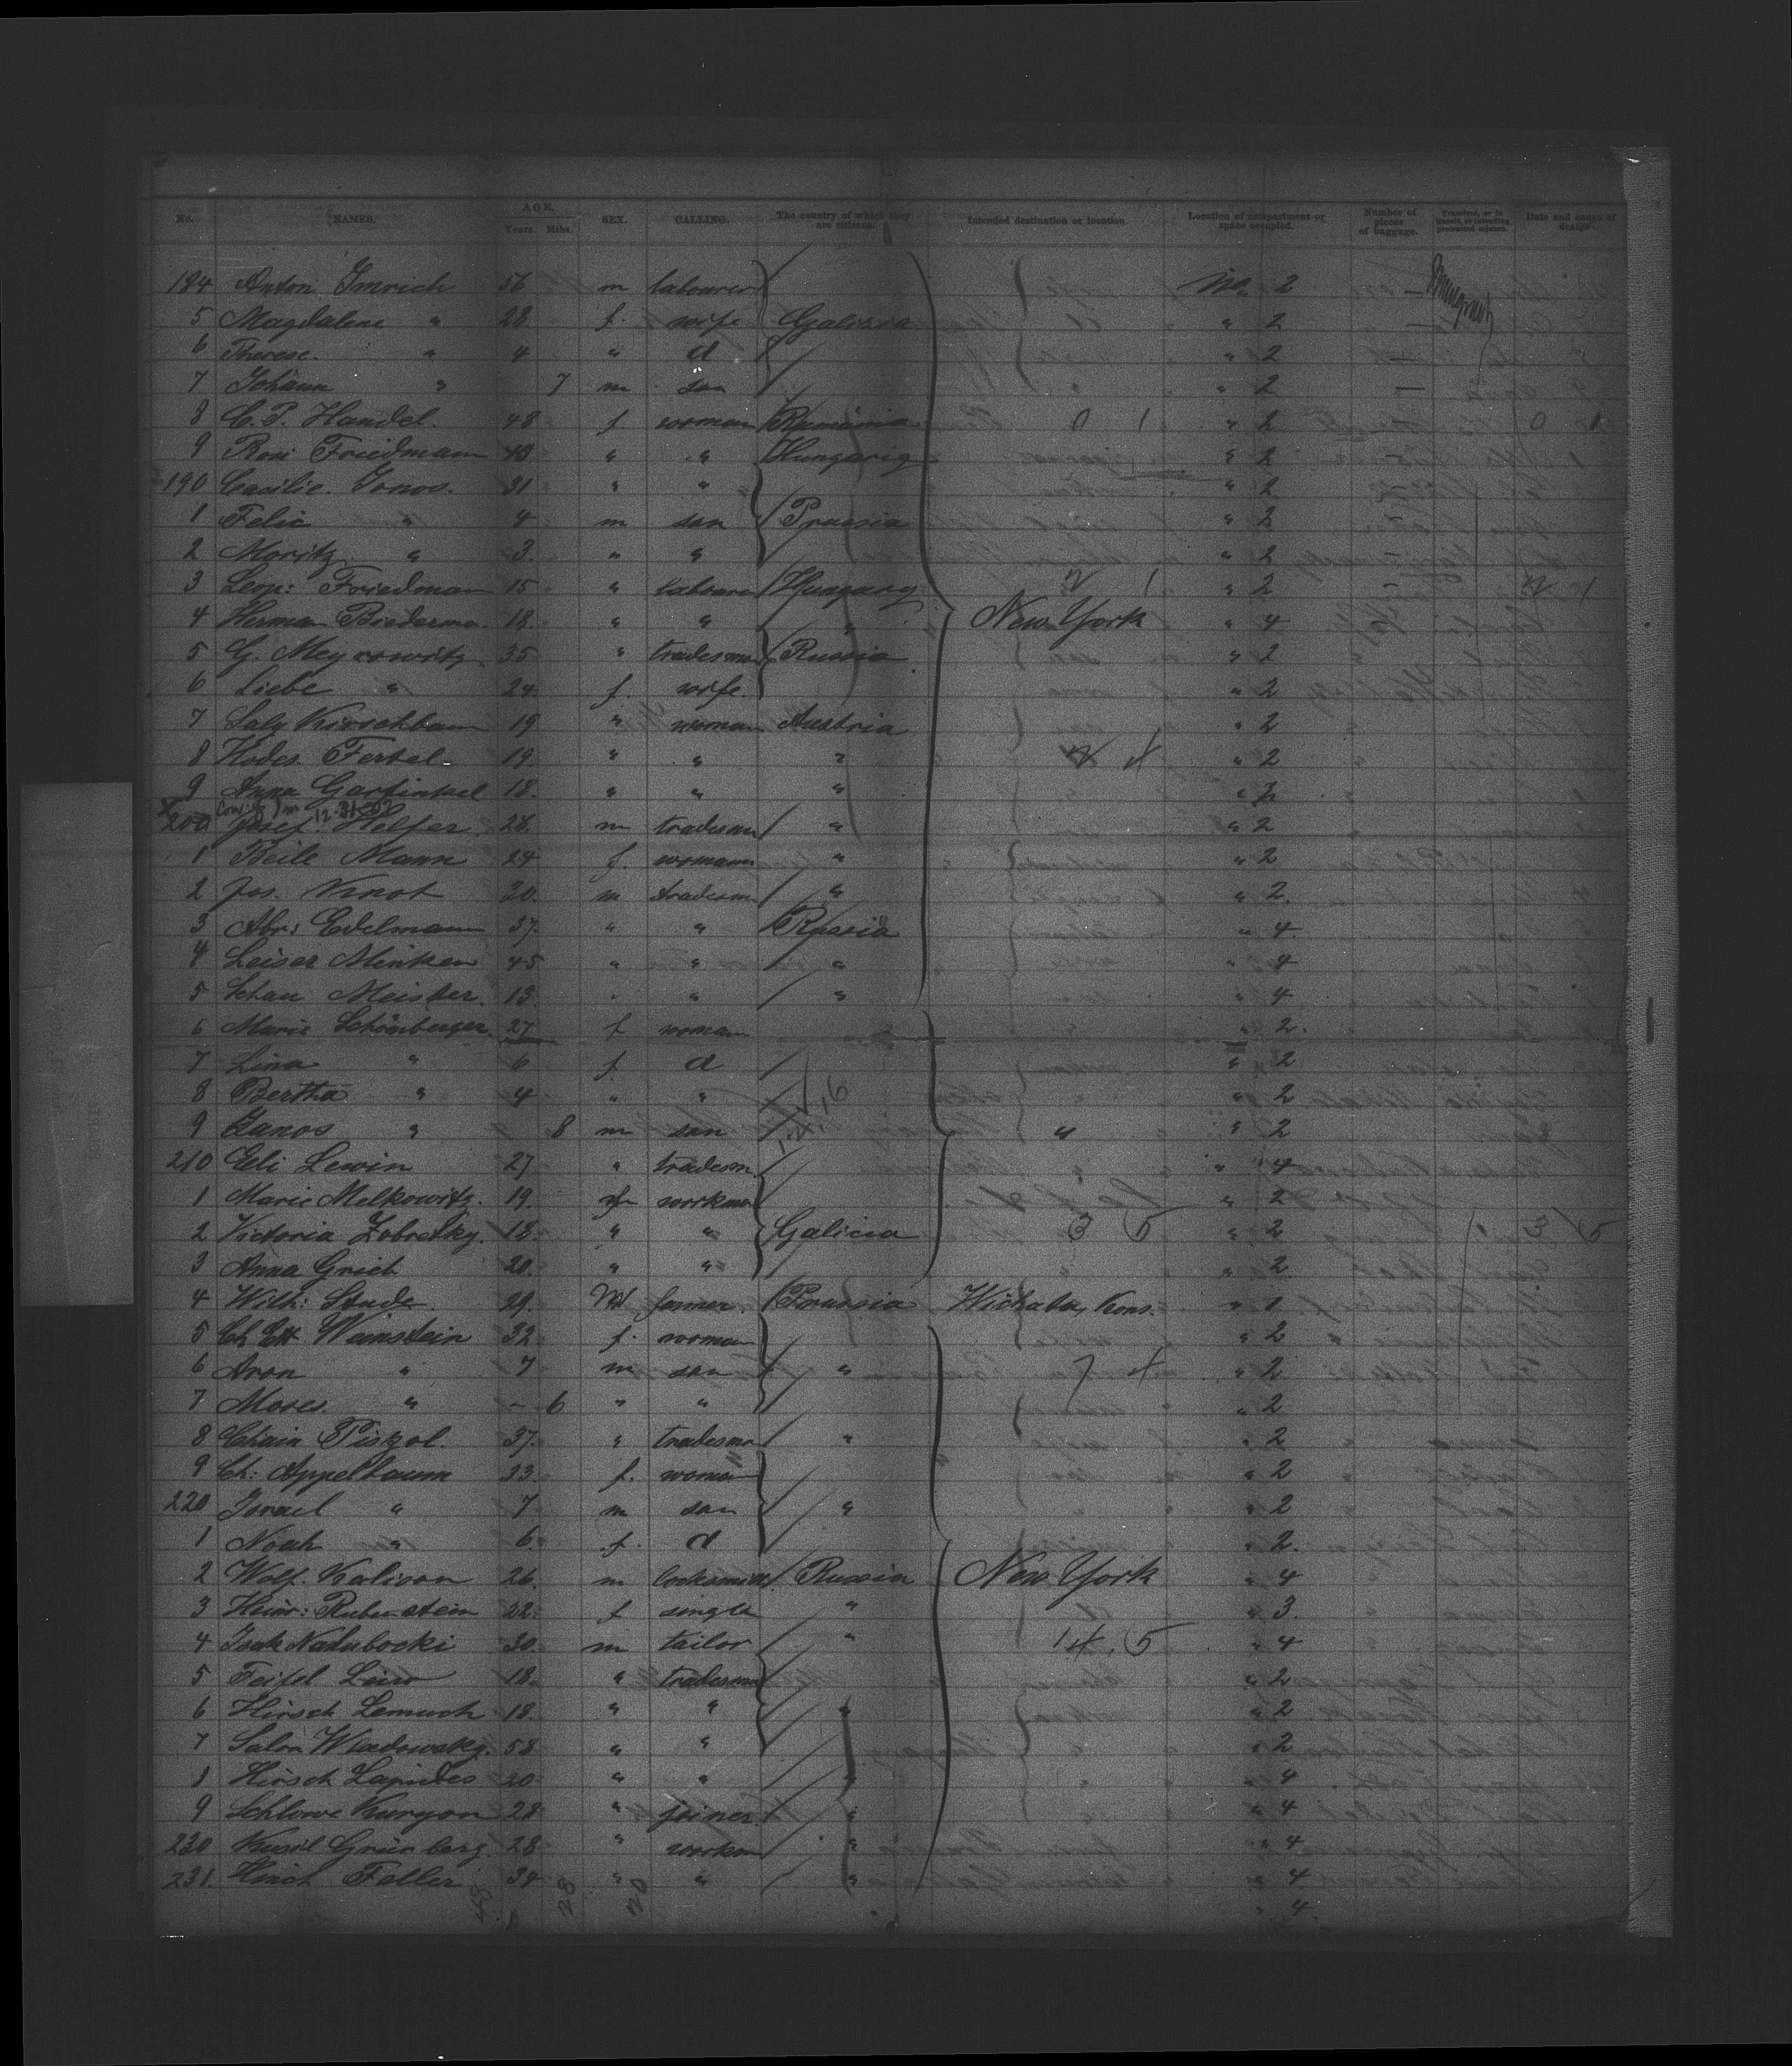 No. NAMES. AGE. SEX. CALLING. The country of which they are citizens. Intended destination or location. Location of compartment or space occupied. Number of pieces of baggage. Transient, or in transit, or intending protracted sojourn. Date and cause of
Years. Mths.
184 Anton Imrich 56 m labourer No. 2 —
5 Magdalene " 28 f. wife Galizia " 2 —
6 Therese " 4 " d " 2 —
7 Johann " 7 m son " 2 —
8 C. P. Handel. 48 f woman Rumänia 0 1 " 2 0 1
9 Rosi Friedmann " " Hungaria " 2
190 Caecilie Jonos. 31 " " " 2
1 Felix " 4 m son Prussia " 2
2 Moritz " 3. " " " 2
3 Leop: Friedman 15 " labourer Hungary 1 " 2 1
4 Herman Biederma 18. " " " New York " 4
5 G. Meyrowitz 35 " tradesma Russia " 2
6 Liebe " 24 f. wife. " 2
7 Saly Kirschbaum 19 " woman Austria " 2
8 Hodes Fertel 19. " " " " 2
9 Anna Garfinkel 18. " " " " 2
12-31-
200 Josef Helfer. 28. m tradesm " " 2
1 Beile Mann 24 f. womann " " 2
2 Jos. Knot 30. m tradesm " " 2.
3 Abr: Edelmann 37. " " Russia " 4.
4 Leiser Minken 45 " " " " 4
5 Schau Meister. 13. " " " " 4
6 Marie Schönberger. 27 f woman " 2.
7 Lina " 6 f d " 2
8 Bertha " 4 " " " 2
9 Janos " 8 m son " " 2
210 Eli Lewin 27 " tradesm " 4
1 Marie Melkowitz. 19. f workma " 2
2 Victoria Zobretsky. 18. " " Galicia 3 5 " 2 3 5
3 Anna Grich 20. " " " 2
4 Wilh: Stade 29. M farmer. Prussia Wichata, Kans. " 1
5 Ch Ett Weinstein 32 f. woman " 2
6 Aron " 7 m son " 7 4 " 2
7 Moses " - 6 " " " 2
8 Chain Piskol. 37. " tradesma " " 2
9 Ch: Appelbaum 33. f. woman " 2
220 Israel " 7 m son " " 2
1 Noah " 6. f. d " 2.
2 Wolf. Kalison 26. m locksmith Russia New York " 4
3 Heinr: Rubenstein 22. f single " " 3.
4 Isak Nalubocki 30. m tailor " 14. 5 " 4
5 Feifel 18. " tradesma " 2
6 Hirsch Lemuch 18. " " " " 2
7 Salm Wladowsky. 58 " " " 2
8 Hirsch Lapides 20 " " " " 4
9 Schlome Kurgon 28 " joiner. " " 4
230 Kussil Grünberg. 28 " workm " " 4
231. Hirsch Feller 34 " " " " 4
28 20 " 4.